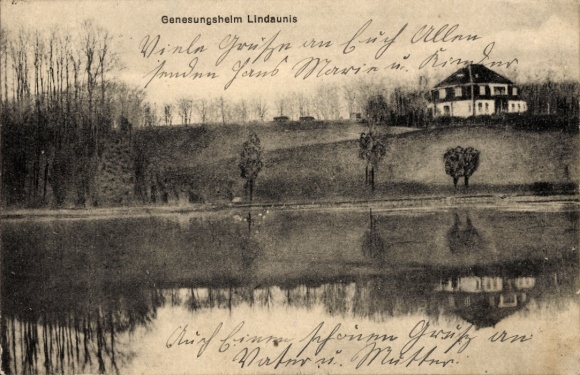 Genesungsheim Lindaunis
Viele Grüße an Euch Allen
senden Hans Marie u. Kinder
Auch Einen schönen Gruß an
Vater u. Mutter.